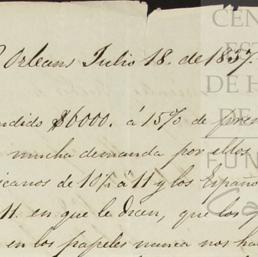 Orleans Julio 18. de 1837.
$6000. á 15% de
mucha demanda por ellos
icanos de 10½ á 11 y los Españo
11. en que le dicen, que los
en los papeles nunca nos ha
CEN
ES
DE H
DE
FUN